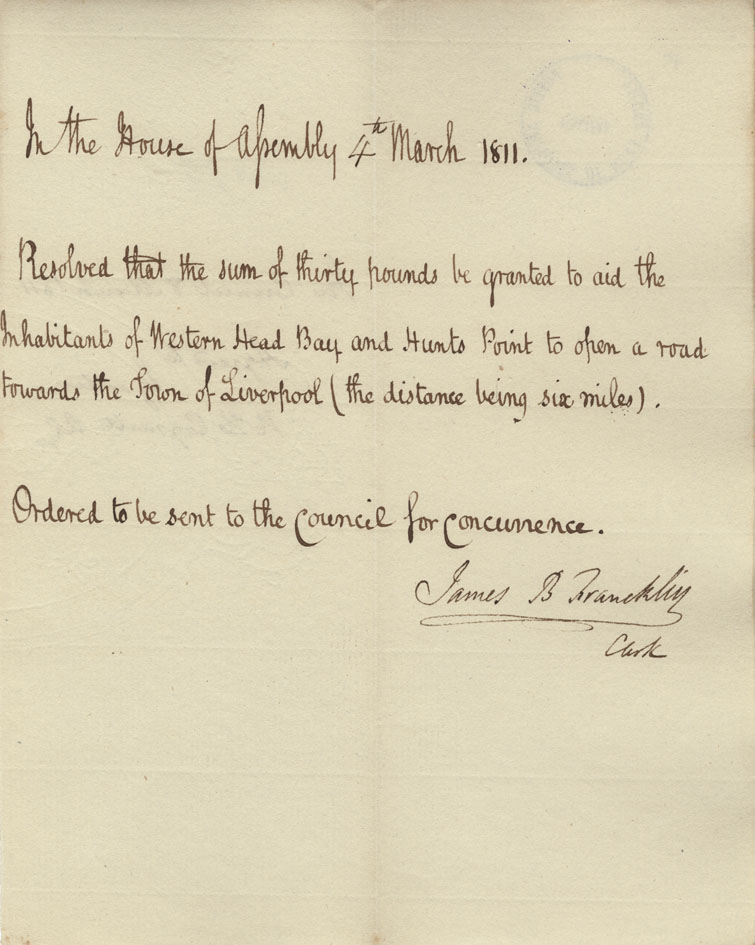 In the House of Assembly 4th March 1811.
Resolved that the sum of thirty pounds be granted to aid the
Inhabitants of Western Head Bay and Hunts Point to open a road
towards the Town of Liverpool (the distance being six miles).
Ordered to be sent to the Council for Concurrence.
James B Francklin
Clerk